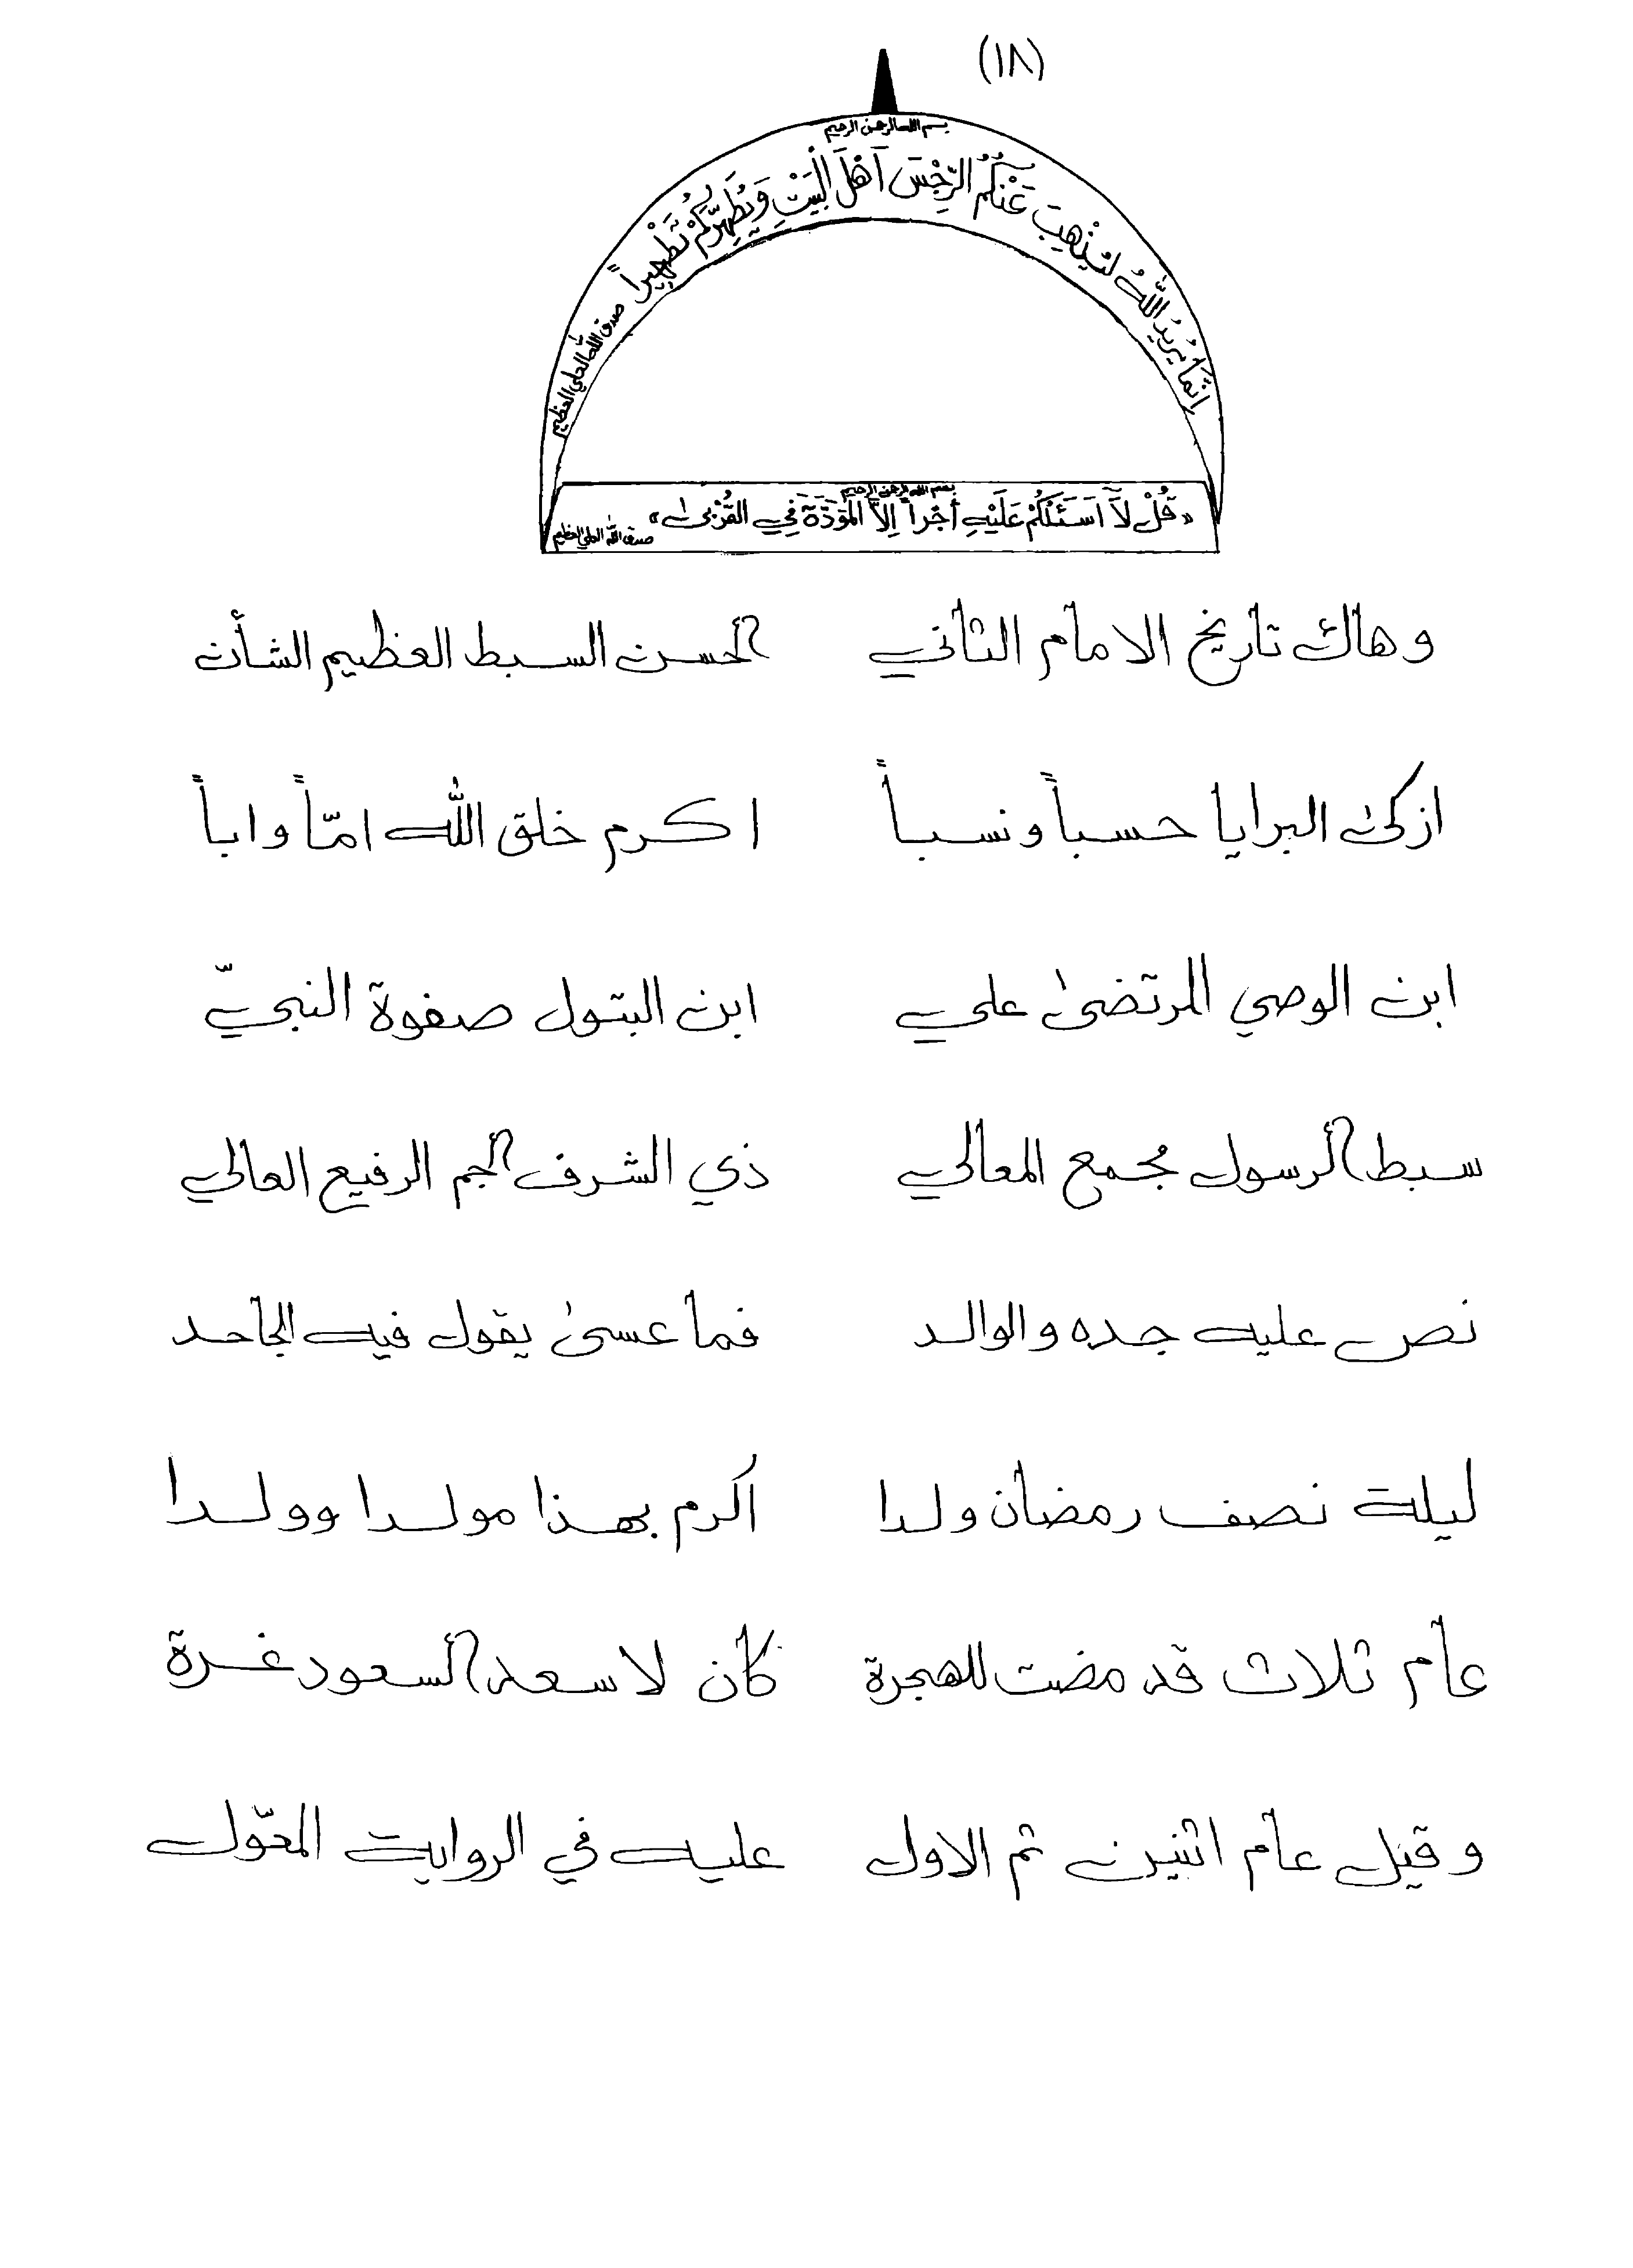 (١٨)
بسم الله الرحمن الرحيم
إِنَّمَا يُرِيدُ اللّٰهُ لِيُذْهِبَ عَنْكُمُ الرِّجْسَ اَهْلَ الْبَيْتِ وَيُطَهِّرَكُمْ تَطْهِيراً
صدق اللّٰه العلي العظيم
بسم الله الرحمن الرحيم
«قُلْ لاَ اَسَئَلُكُمْ عَلَيْهِ أَجْراً اِلاَّ الْمَوَدَّةَ فِي الْقُرْبىٰ»
صدق اللّٰه العلي العظيم
وهاك تاريخ الامام الثاني الحسن السبط العظيم الشأن
ازكىٰ البرايا حسباً ونسباً اكرم خلق اللّٰه امّاً واباً
ابن الوصي المرتضىٰ علي ابن البتول صفوة النبيّ
سبط الرسول مجمع المعالي ذي الشرف الجم الرفيع العالي
نص عليه جده والوالد فما عسىٰ يقول فيه الجاحد
ليلة نصف رمضان ولدا اكرم بهذا مولدا وولدا
عام ثلاث قد مضت للهجرة كان لاسعد السعود غرة
وقيل عام اثنين ثم الاول عليه في الرواية المعوّل